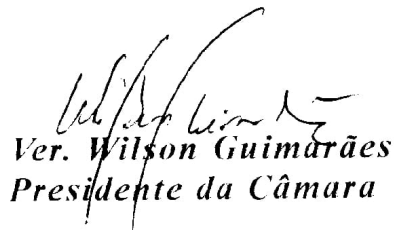 Ver. Wilson Guimarães
Presidente da Câmara